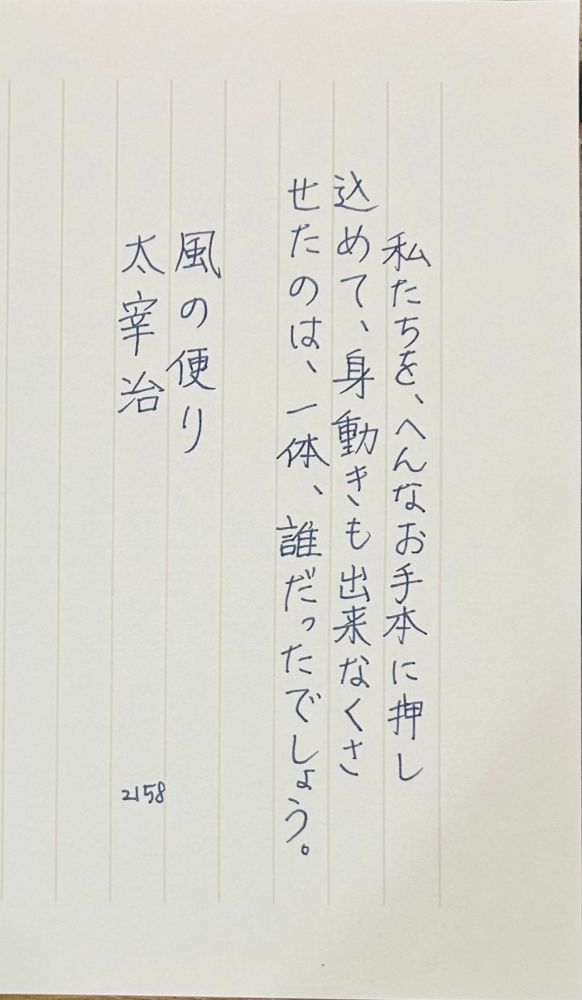 私たちを、へんなお手本に押し
込めて、身動きも出来なくさ
せたのは、一体、誰だったでしょう。
風の便り
太宰治
2158